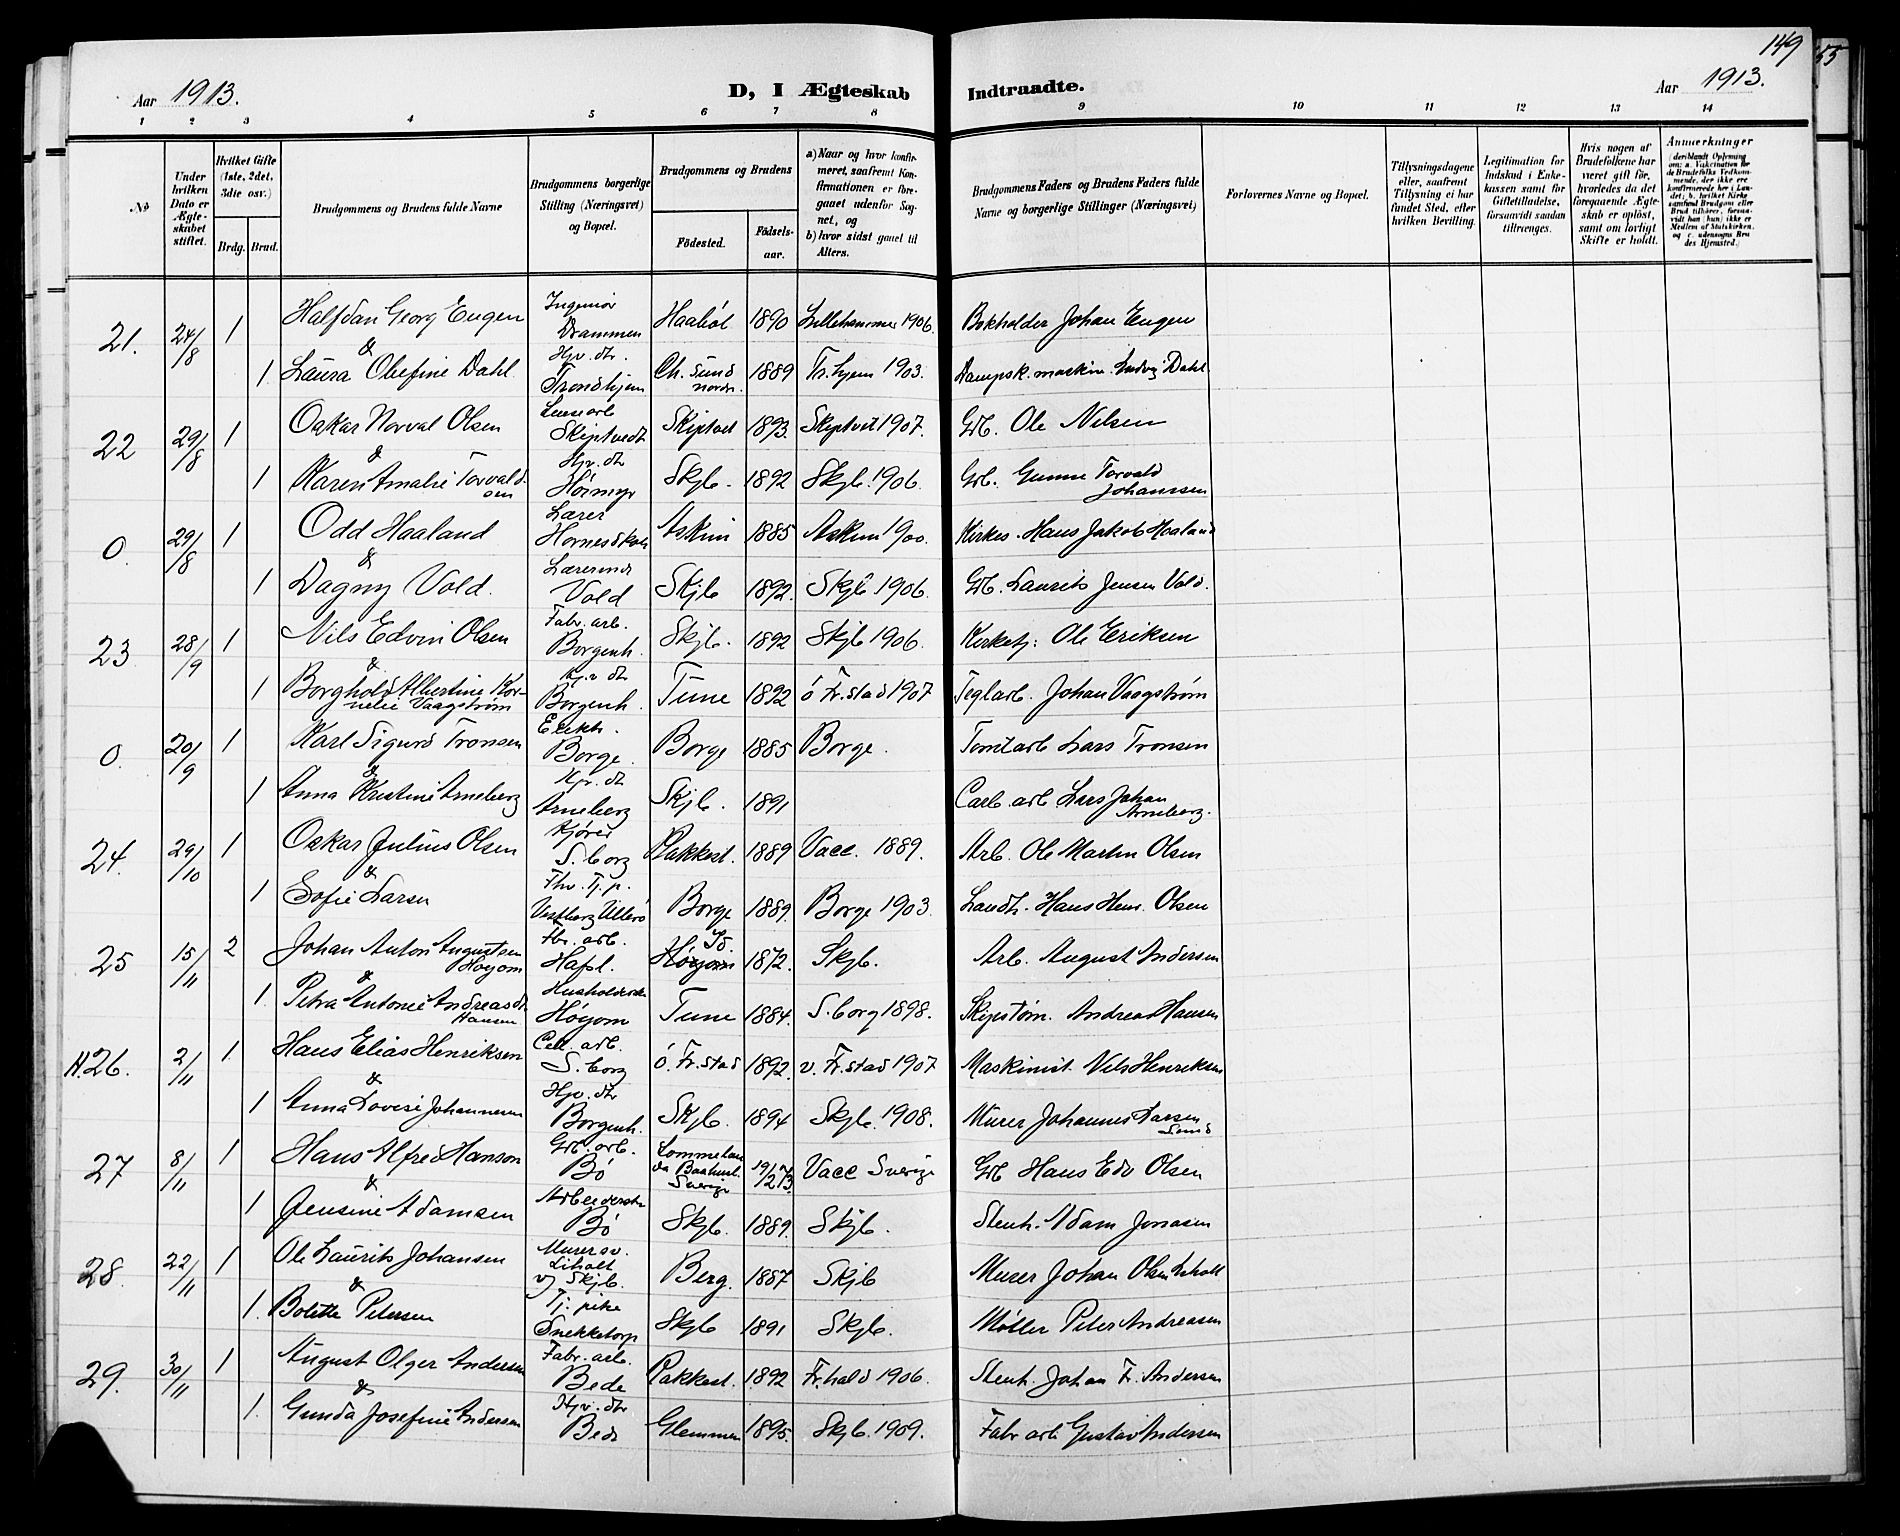 149
55
Aar 1913.
D, I Ægteskab Indtraadte.
Aar 1913.
1 2 3 4 5 6 7 8 9 10 11 12 13 14
No
Under hvilken Dato er Ægteskabet stiftet.
Hvilket Gifte (1ste, 2det, 3die osv.)
Brdg. Brud.
Brudgommens og Brudens fulde Navne
Brudgommens borgerlige Stilling (Næringsvei) og Bopæl.
Brudgommens og Brudens
Födested. Födsels-aar.
a) Naar og hvor konfirmeret, saafremt Konfirmationen er foregaaet udenfor Sognet, og
b) hvor sidst gaaet til Alters.
Brudgommens Faders og Brudens Faders fulde Navne og borgerlige Stillinger (Næringsvei)
Forlovernes Navne og Bopæl.
Tillysningsdagene eller, saafremt Tillysning ei har fundet Sted, efter hvilken Bevilling.
Legitimation for Indskud i Enkekassen samt for Giftetilladelse, forsaavidt saadan tiltrænges.
Hvis nogen af Brudefolkene har været gift før, hvorledes da det foregaaende Ægteskab er opløst, samt om lovligt Skifte er holdt.
Anmærkninger
21. 24/8 1 Halfdan Georg Eugen Ingeniør Drammen Haabøl 1890 Lillehammer 1906. Bokholder Johan Eugen
& 1 Laura Olefine Dahl Hjv. dtr. Trondhjem Ch. sund nordr. 1889 Tr.hjem 1903. Dampsk. maskin. Ludvig Dahl
22 29/8 1 Oskar Norval Olsen Skiptvedt Skiptvet 1893. Skiptvet 1907. Grb. Ole Nilsen
& 1 Karen Amalie Torvaldsen Hjv. dtr Høimyr Skjb. 1892 Skjb. 1906. Grb. Gunne Torvald Johanssen
0. 29/8 1 Odd Haaland Lærer Hornes skole Askim 1885 Askim 1900. Kirkes. Hans Jakob Haaland
& 1 Dagny Vold. Lærerinde Vold Skjb 1892. Skjb 1906. Grb. Laurits Jensen Vold.
23 28/9 1 Nils Edvin Olsen Fabr. arb. Borgenh. Skjb. 1892 Skjb 1906. Kirketj. Ole Eriksen
& 1 Borghold Albertine Kornelie Vaagstrøm Hjv dtr Borgenh. Tune 1892 ø Fr.stad 1907 Teglarb. Johan Vaagstrøm
0. 20/9 1 Karl Sigurd Tronsen Elektr. Borge. Borge 1885 Borge. Tomtarb Lars Tronsen
& 1 Anna Kristine Arneberg Hjv. dtr Arneberg Skjb. 1891 Carb. arb Lars Johan Arneberg.
24. 29/10 1 Oskar Julius Olsen Kjører S.borg Rakkest. 1889 Vacc. 1889. Arb. Ole Martin Olsen
& 1 Sofie Larsen Fhv. Tj. p. Vestberg Ullerø Borge 1889. Borge 1903. Landh. Hans Henr. Olsen
25 15/11 2 Johan Anton Augustsen Høyom Fbr. arb. Hafsl. Høyom Id. 1872. Skjb. Arb. August Andersen
& 1. Petra Antonie Andreasdtr Hansen Husholderske Høyom Tune 1884. S.borg 1898. Skipstøm. Andreas Hansen
N.26. 2/11 1 Hans Elias Henriksen Cell. arb. S.borg ø. Fr.stad 1892. v. Fr.stad 1907 Maskinist Nils Henriksen
& 1 Anna Lovise Johannesen Hjv. dtr Borgenh. Skjb. 1894 Skjb. 1908. Murer Johannes Larsen Sand
27 8/11 1 Hans Alfred Hanson Grb. arb. Bø Lommeland Baahusl. Sverige 19/2 73. Vacc Sverige Grb Hans Edv Olsen
& 1 Jensine Adamsen Arbeiderske Bø Skjb. 1889. Skjb. Stenh. Adam Jonasen
28. 22/11 1 Ole Laurits Johansen Murer sv. Liholt v/ Skjb. Berg. 1887 Skjb Murer Johan Olsen Liholt
& 1. Bolette Petersen Tj. pike Snekketorp Skjb 1891 Skjb. Møller Peter Andreasen
29. 30/11 1 August Olger Andersen Fabr. arb. Bede Rakkest. 1892 Fr.hald 1906. Stenh. Johan Fr. Andersen
& 1. Gunda Josefine Andersen Hjv. dtr Bede Glemmen 1895. Skjb. 1909. Fabr arb Gustav Andersen